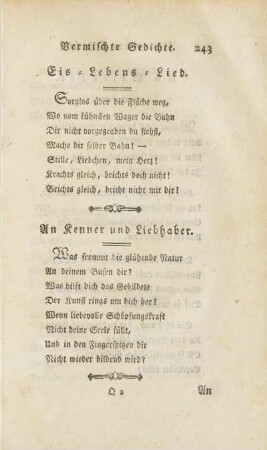 Vermischte Gedichte. 243
Eis-Lebens-Lied.
Sorglos über die Fläche weg,
Wo vom kühnsten Wager die Bahn
Dir nicht vorgegraben du siehst,
Mache dir selber Bahn! —
Stille, Liebchen, mein Herz!
Krachts gleich, brichts doch nicht!
Brichts gleich, bricht nicht mit dir!
An Kenner und Liebhaber.
Was frommt die glühende Natur
An deinem Busen dir?
Was hilft dich das Gebildete
Der Kunst rings um dich her?
Wenn liebevolle Schöpfungskraft
Nicht deine Seele füllt,
Und in den Fingerspitzen dir
Nicht wieder bildend wird?
Q 2 An